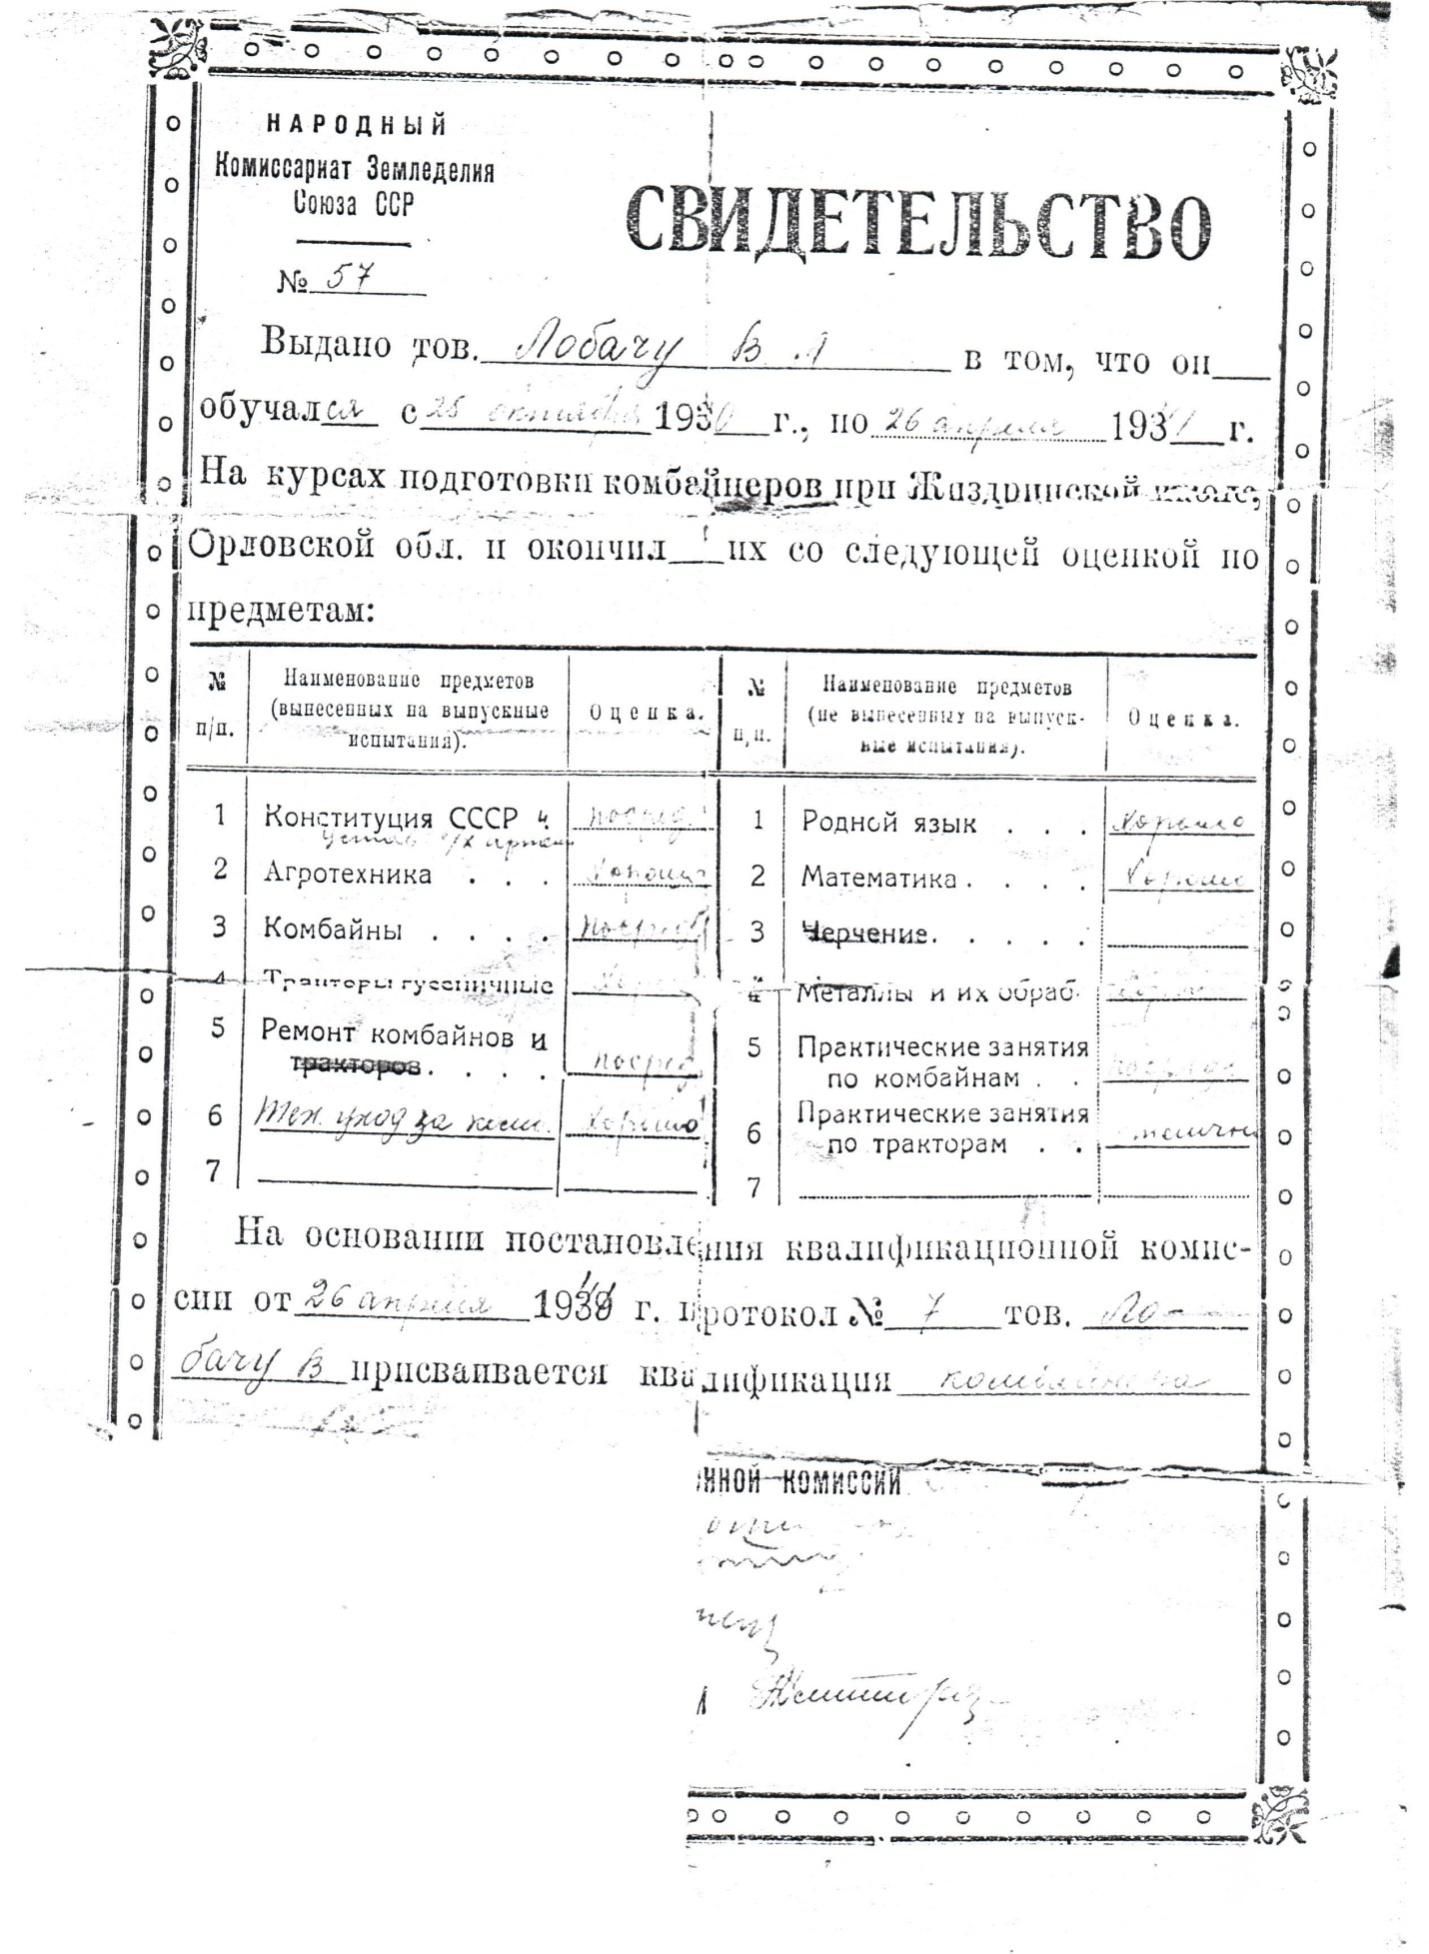 НАРОДНЫЙ
Комиссариат Земледелия
Союза ССР
№ 57
СВИДЕТЕЛЬСТВО
Выдано тов. Лобачу В Л в том, что он
обучался с 25 октября 1940 г., по 26 апреля 1941 г.
На курсах подготовки комбайнеров при Жиздринской школе,
Орловской обл. и окончил их со следующей оценкой по
предметам:
№ п/п. Наименование предметов (вынесенных на выпускные испытания). Оценка. № п/п. Наименование предметов (не вынесенных на выпускные испытания). Оценка.
1 Конституция СССР и Устав с/х артели посред. 1 Родной язык . . . хорошо
2 Агротехника . . . хорошо 2 Математика . . . . хорошо
3 Комбайны . . . . посред 3 Черчение . . . . .
4 Тракторы гусеничные хорошо 4 Металлы и их обраб.
5 Ремонт комбайнов и тракторов . . . . посред 5 Практические занятия по комбайнам . . посред
6 Тех. уход за ком. хорошо 6 Практические занятия по тракторам . . отлично
7 7
На основании постановления квалификационной комис-
сии от 26 апреля 1941 г. протокол № 7 тов. Ло-
бачу В присваивается квалификация комбайнера
нной комиссии